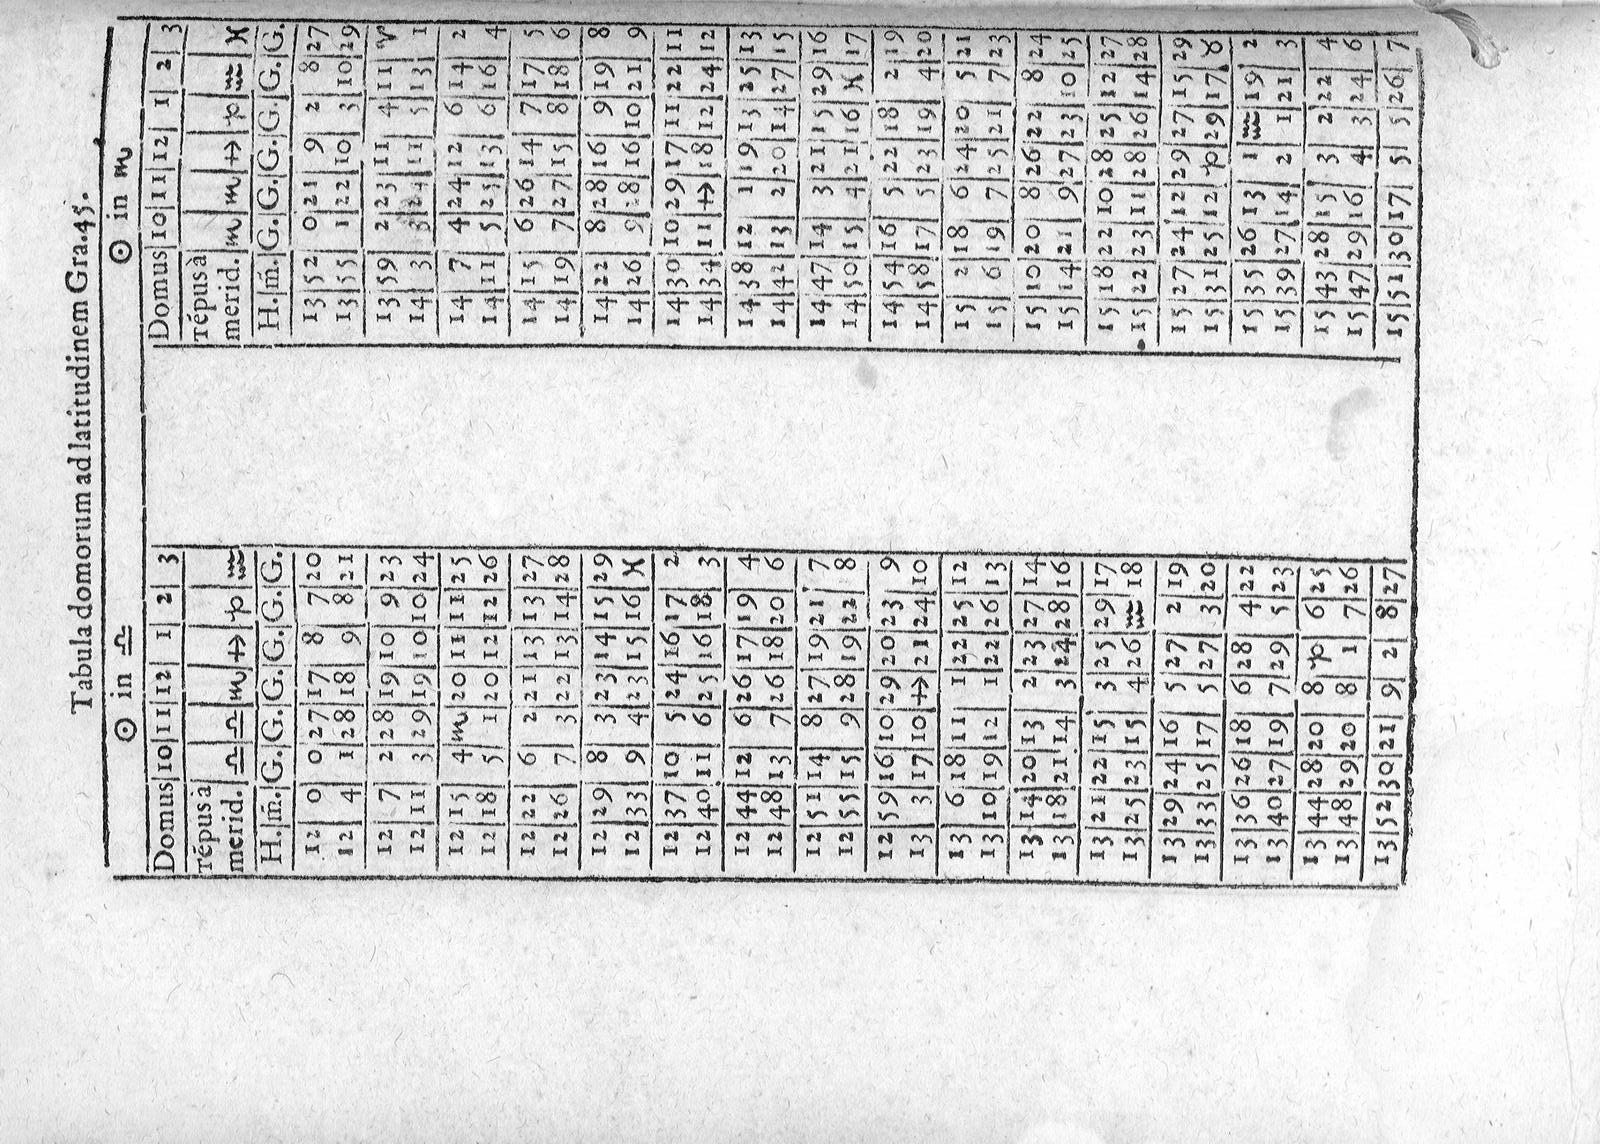 Tabula domorum ad latitudinem Gra.45.
☉ in ♎
Domus 10 11 12 1 2 3
Tépus à
merid. ♎ ♎ ♏ ♐ ♑ ♒
H. m̄. G. G. G. G. G. G.
12 0 0 27 17 8 7 20
12 4 1 28 18 9 8 21
12 7 2 28 19 10 9 23
12 11 3 29 19 10 10 24
12 15 4 ♏ 20 11 11 25
12 18 5 1 20 12 12 26
12 22 6 2 21 13 13 27
12 26 7 3 22 13 14 28
12 29 8 3 23 14 15 29
12 33 9 4 23 15 16 ♓
12 37 10 5 24 16 17 2
12 40 11 6 25 16 18 3
12 44 12 6 26 17 19 4
12 48 13 7 26 18 20 6
12 51 14 8 27 19 21 7
12 55 15 9 28 19 22 8
12 59 16 10 29 20 23 9
13 3 17 10 ♐ 21 24 10
13 6 18 11 1 22 25 12
13 10 19 12 1 22 26 13
13 14 20 13 2 23 27 14
13 18 21 14 3 24 28 16
13 21 22 15 3 25 29 17
13 25 23 15 4 26 ♒ 18
13 29 24 16 5 27 2 19
13 33 25 17 5 27 3 20
13 36 26 18 6 28 4 22
13 40 27 19 7 29 5 23
13 44 28 20 8 ♑ 6 25
13 48 29 20 8 1 7 26
13 52 30 21 9 2 8 27
☉ in ♏
Domus 10 11 12 1 2 3
Tépus à
merid. ♏ ♏ ♐ ♑ ♒ ♓
H. m̄. G. G. G. G. G. G.
13 52 0 21 9 2 8 27
13 55 1 22 10 3 10 29
13 59 2 23 11 4 11 ♈
14 3 3 24 11 5 13 1
14 7 4 24 12 6 14 2
14 11 5 25 13 6 16 4
14 15 6 26 14 7 17 5
14 19 7 27 15 8 18 6
14 22 8 28 16 9 19 8
14 26 9 28 16 10 21 9
14 30 10 29 17 11 22 11
14 34 11 ♐ 18 12 24 12
14 38 12 1 19 13 25 13
14 42 13 2 20 14 27 15
14 47 14 3 21 15 29 16
14 50 15 4 21 16 ♓ 17
14 54 16 5 22 18 2 19
14 58 17 5 23 19 4 20
15 2 18 6 24 20 5 21
15 6 19 7 25 21 7 23
15 10 20 8 26 22 8 24
15 14 21 9 27 23 10 25
15 18 22 10 28 25 12 27
15 22 23 11 28 26 14 28
15 27 24 12 29 27 15 29
15 31 25 12 ♑ 29 17 ♉
15 35 26 13 1 ♒ 19 2
15 39 27 14 2 1 21 3
15 43 28 15 3 2 22 4
15 47 29 16 4 3 24 6
15 51 30 17 5 5 26 7